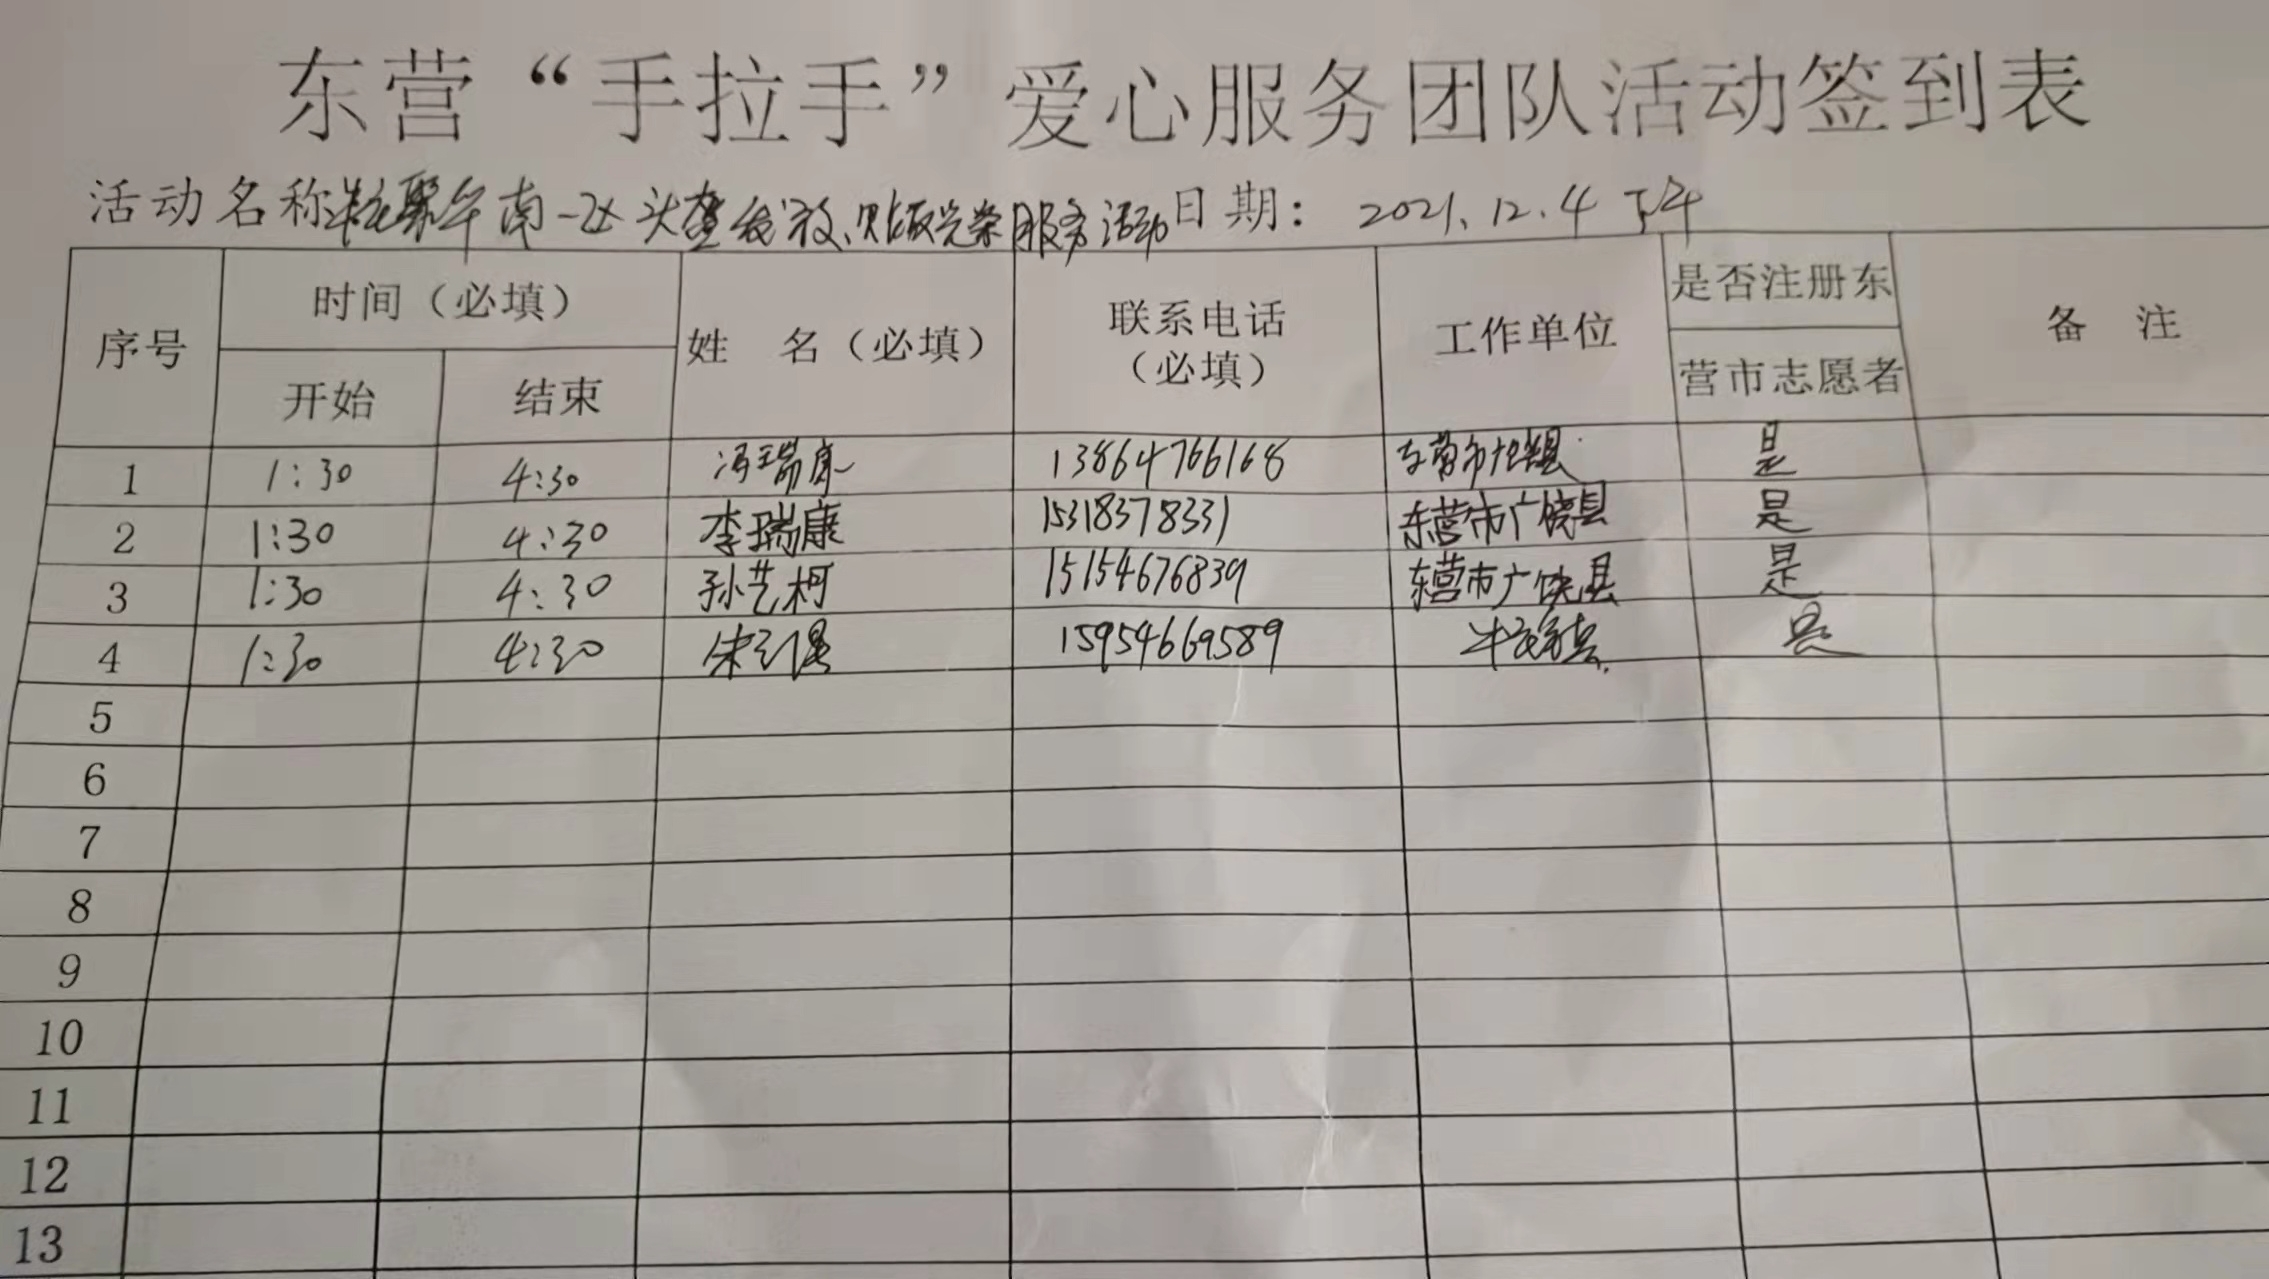 东营“手拉手”爱心服务团队活动签到表
活动名称 南一区 发放、服务活动 日期: 2021.12.4 下午
序号 时间(必填) 姓 名(必填) 联系电话(必填) 工作单位 是否注册东营市志愿者 备 注
开始 结束
1 1:30 4:30 冯瑞康 13864766168 东营市 是
2 1:30 4:30 李瑞康 15318378331 东营市广饶县 是
3 1:30 4:30 孙艺柯 15154676839 东营市广饶县 是
4 1:30 4:30 15954669589 是
5
6
7
8
9
10
11
12
13